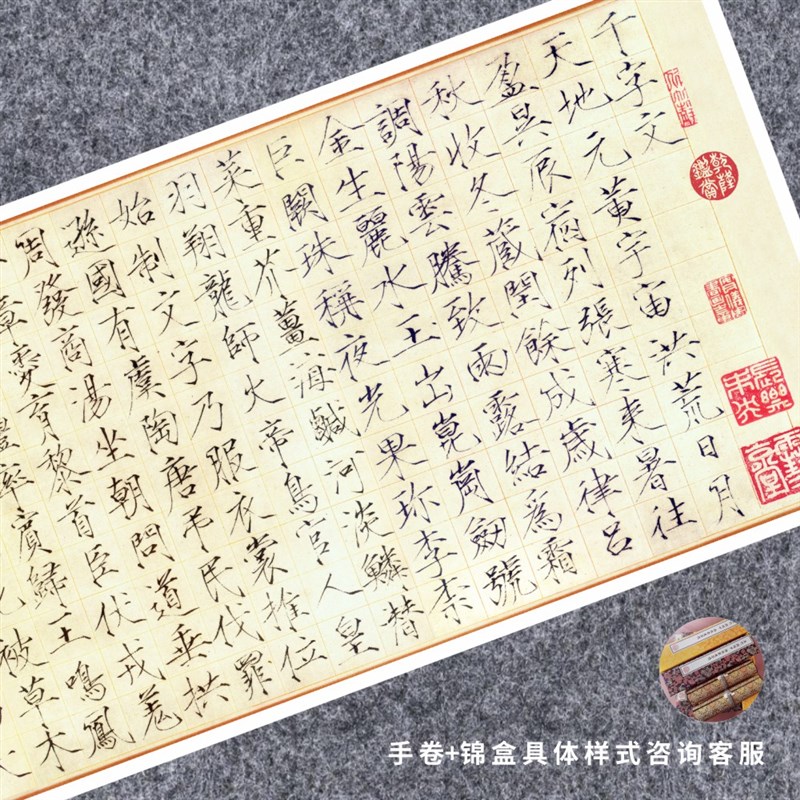 千字文
天地元黃宇宙洪荒日月
盈昃辰宿列張寒来暑往
秋收冬藏閏餘成歲律吕
調陽雲騰致雨露結爲霜
金生麗水玉出崑崗劒號
巨闕珠稱夜光果珎李柰
菜重芥薑海鹹河淡鱗潛
羽翔龍師火帝鳥官人皇
始制文字乃服衣裳推位
遜國有虞陶唐弔民伐罪
周發商湯坐朝問道垂拱
章愛育黎首臣伏戎羌
體率賓歸王鳴鳳
化被草木
乾隆鑑賞
長樂未央
手卷+锦盒具体样式咨询客服